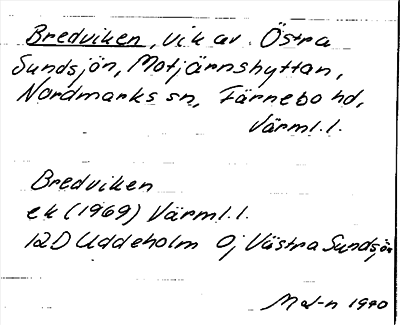 Bredviken, vik av Östra
Sundsjön, Motjärnshyttan,
Nordmarks sn, Färnebo hd,
Värml. l.
Bredviken
ek (1969) Värml. l.
12D Uddeholm 0j Västra Sundsjön
Mat-n 1990